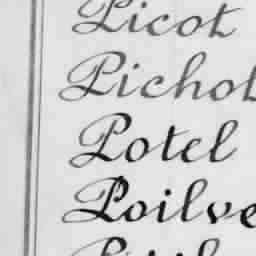 Picot
Pichot
Potel
Poilve